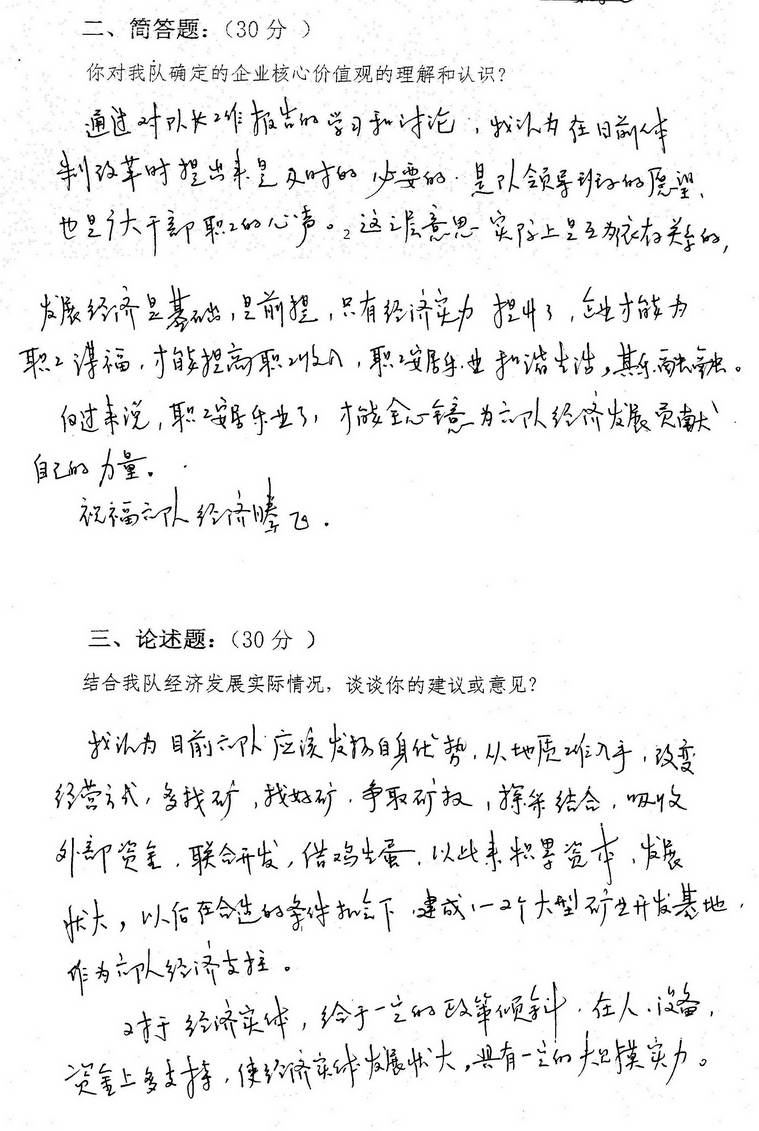 二、简答题：（30分 ）
你对我队确定的企业核心价值观的理解和认识？
通过对队长工作报告的学习和讨论，我认为在目前体
制改革时提出来是及时的 必要的．是队领导班子的愿望、
也是广大干部职工的心声。这二层意思 实际上是互为依存关系的，
发展经济是基础，是前提，只有经济实力 提升了，企业才能为
职工谋福，才能提高职工收入，职工安居乐业 和谐生活，其乐融融。
反过来说，职工安居乐业了，才能全心全意为六队经济发展贡献
自己的力量。
祝福六队经济腾飞．
三、论述题：（30分 ）
结合我队经济发展实际情况，谈谈你的建议或意见？
我认为目前六队应该发扬自身优势，从地质工作入手，改变
经营方式，多找矿，找好矿．争取矿权，探采结合，吸收
外部资金，联合开发，借鸡生蛋，以此来积累资本，发展
壮大，以后在合适的条件机会下 建成1一2个大型矿业开发基地，
作为六队经济支柱。
对于经济实体，给于一定的政策倾斜．在人、设备，
资金上多支持，使经济实体发展壮大，具有一定的规模实力。